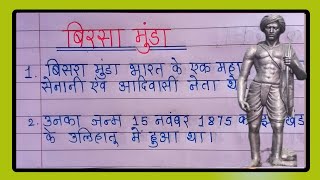 बिरसा मुंडा
1. बिसरा मुंडा भारत के एक
सेनानी एंव आदिवासी नेता थे
2. उनका जन्म 15 नवंबर 1875
के उलिहातू में हुआ था।